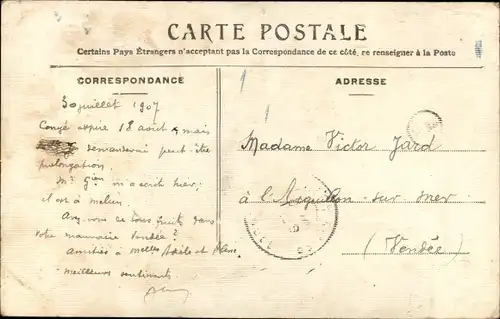 CARTE POSTALE
Certains Pays Étrangers n'acceptent pas la Correspondance de ce côté, se renseigner à la Poste
CORRESPONDANCE
30 juillet 1907
Congé expire 18 août, mais
demanderai peut être
prolongation.
Mr m'a écrit hier;
il est à melun.
Avez vous ce tous fruits dans
votre mauvaise Vendée?
amitiés à melles et
meilleurs sentiments
ADRESSE
Madame Victor Jard
à l'Aiguillon-sur-mer
(Vendée)